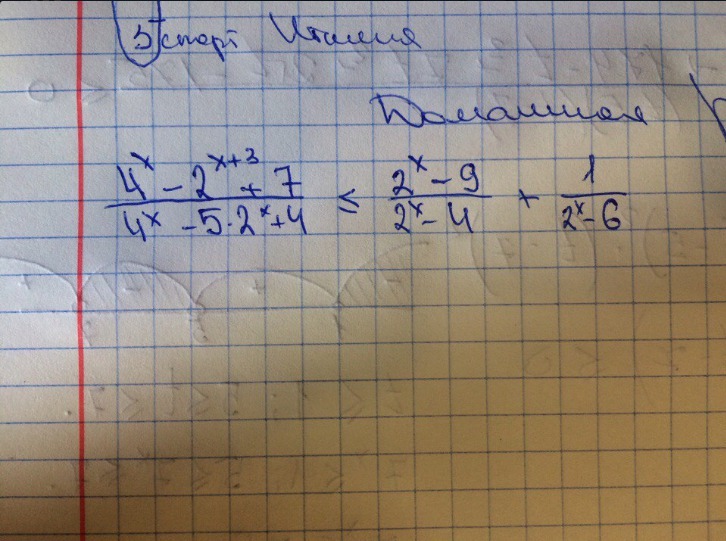 Эспорт Италия
Домашняя
(4^x - 2^(x+3) + 7)/(4^x - 5·2^x + 4) ≤ (2^x - 9)/(2^x - 4) + 1/(2^x - 6)